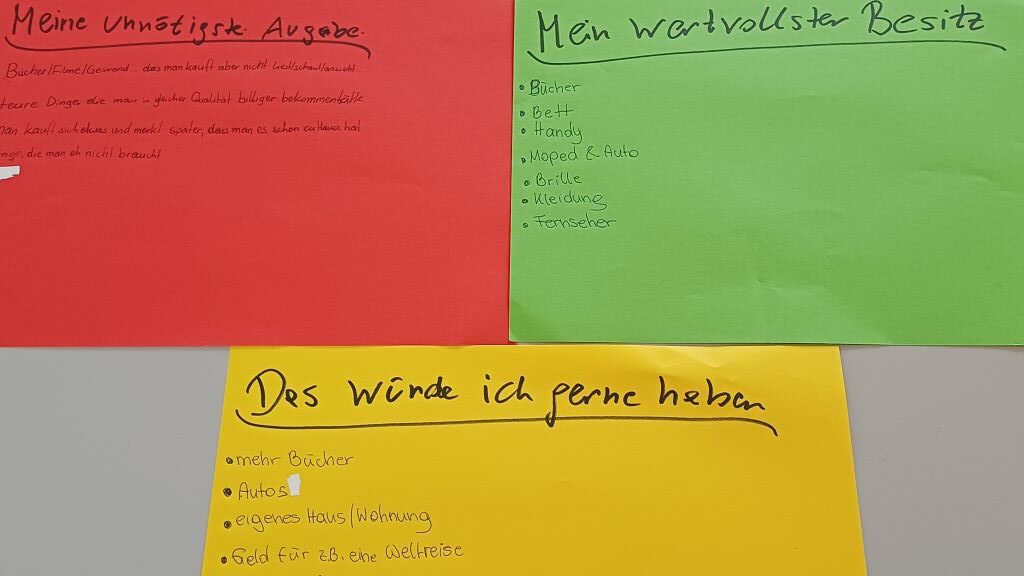 Meine unnötigste Ausgabe
Bücher/Filme/Gewand ... das man kauft aber nicht liest/schaut/anzieht
teure Dinge, die man in gleicher Qualität billiger bekommen hätte
man kauft sich etwas und merkt später, dass man es schon zu Hause hat
nge, die man eh nicht braucht
Mein wertvollster Besitz
• Bücher
• Bett
• Handy
• Moped & Auto
• Brille
• Kleidung
• Fernseher
Das würde ich gerne haben
• mehr Bücher
• Autos
• eigenes Haus/Wohnung
• Geld für z.B. eine Weltreise